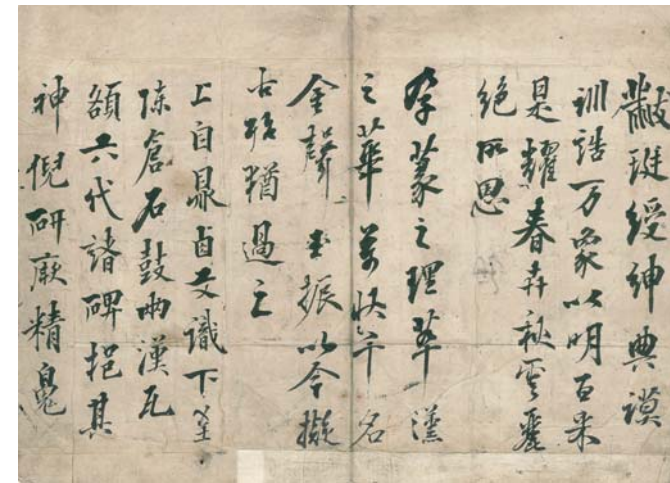 黻珽綬紳典謨
訓誥万象以明百采
是耀春卉秋雲麗
絶所思
孕篆之理萃漢
之華萬状千名
金聲玉振以今擬
古殆猶過之
上自鼎卣文識下至
陳倉石鼓兩漢瓦
額六代諸碑挹其
神倪研厥精魄